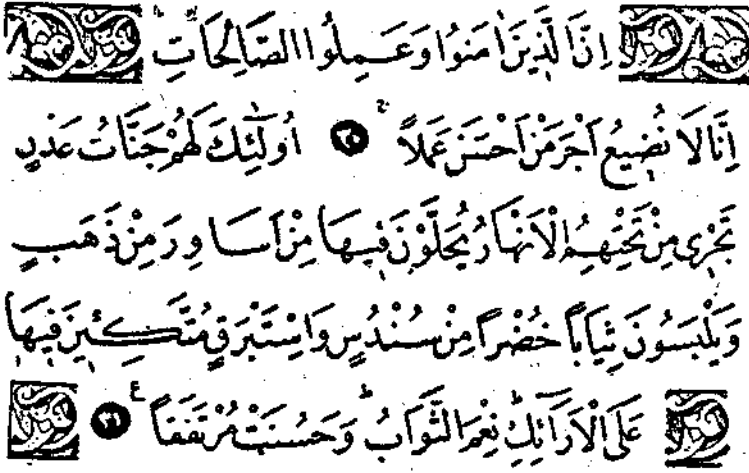 اِنَّ الَّذٖينَ اٰمَنُوا وَعَمِلُوا الصَّالِحَاتِ
اِنَّا لَا نُضٖيعُ اَجْرَ مَنْ اَحْسَنَ عَمَلاً ﴿٣٠﴾ اُولٰٓئِكَ لَهُمْ جَنَّاتُ عَدْنٍ
تَجْرٖى مِنْ تَحْتِهِمُ الْاَنْهَارُ يُحَلَّوْنَ فٖيهَا مِنْ اَسَاوِرَ مِنْ ذَهَبٍ
وَيَلْبَسُونَ ثِيَاباً خُضْراً مِنْ سُنْدُسٍ وَاِسْتَبْرَقٍ مُتَّكِـٖٔينَ فٖيهَا
عَلَى الْاَرَٓائِكِؕ نِعْمَ الثَّوَابُؕ وَحَسُنَتْ مُرْتَفَقاً ع ﴿٣١﴾